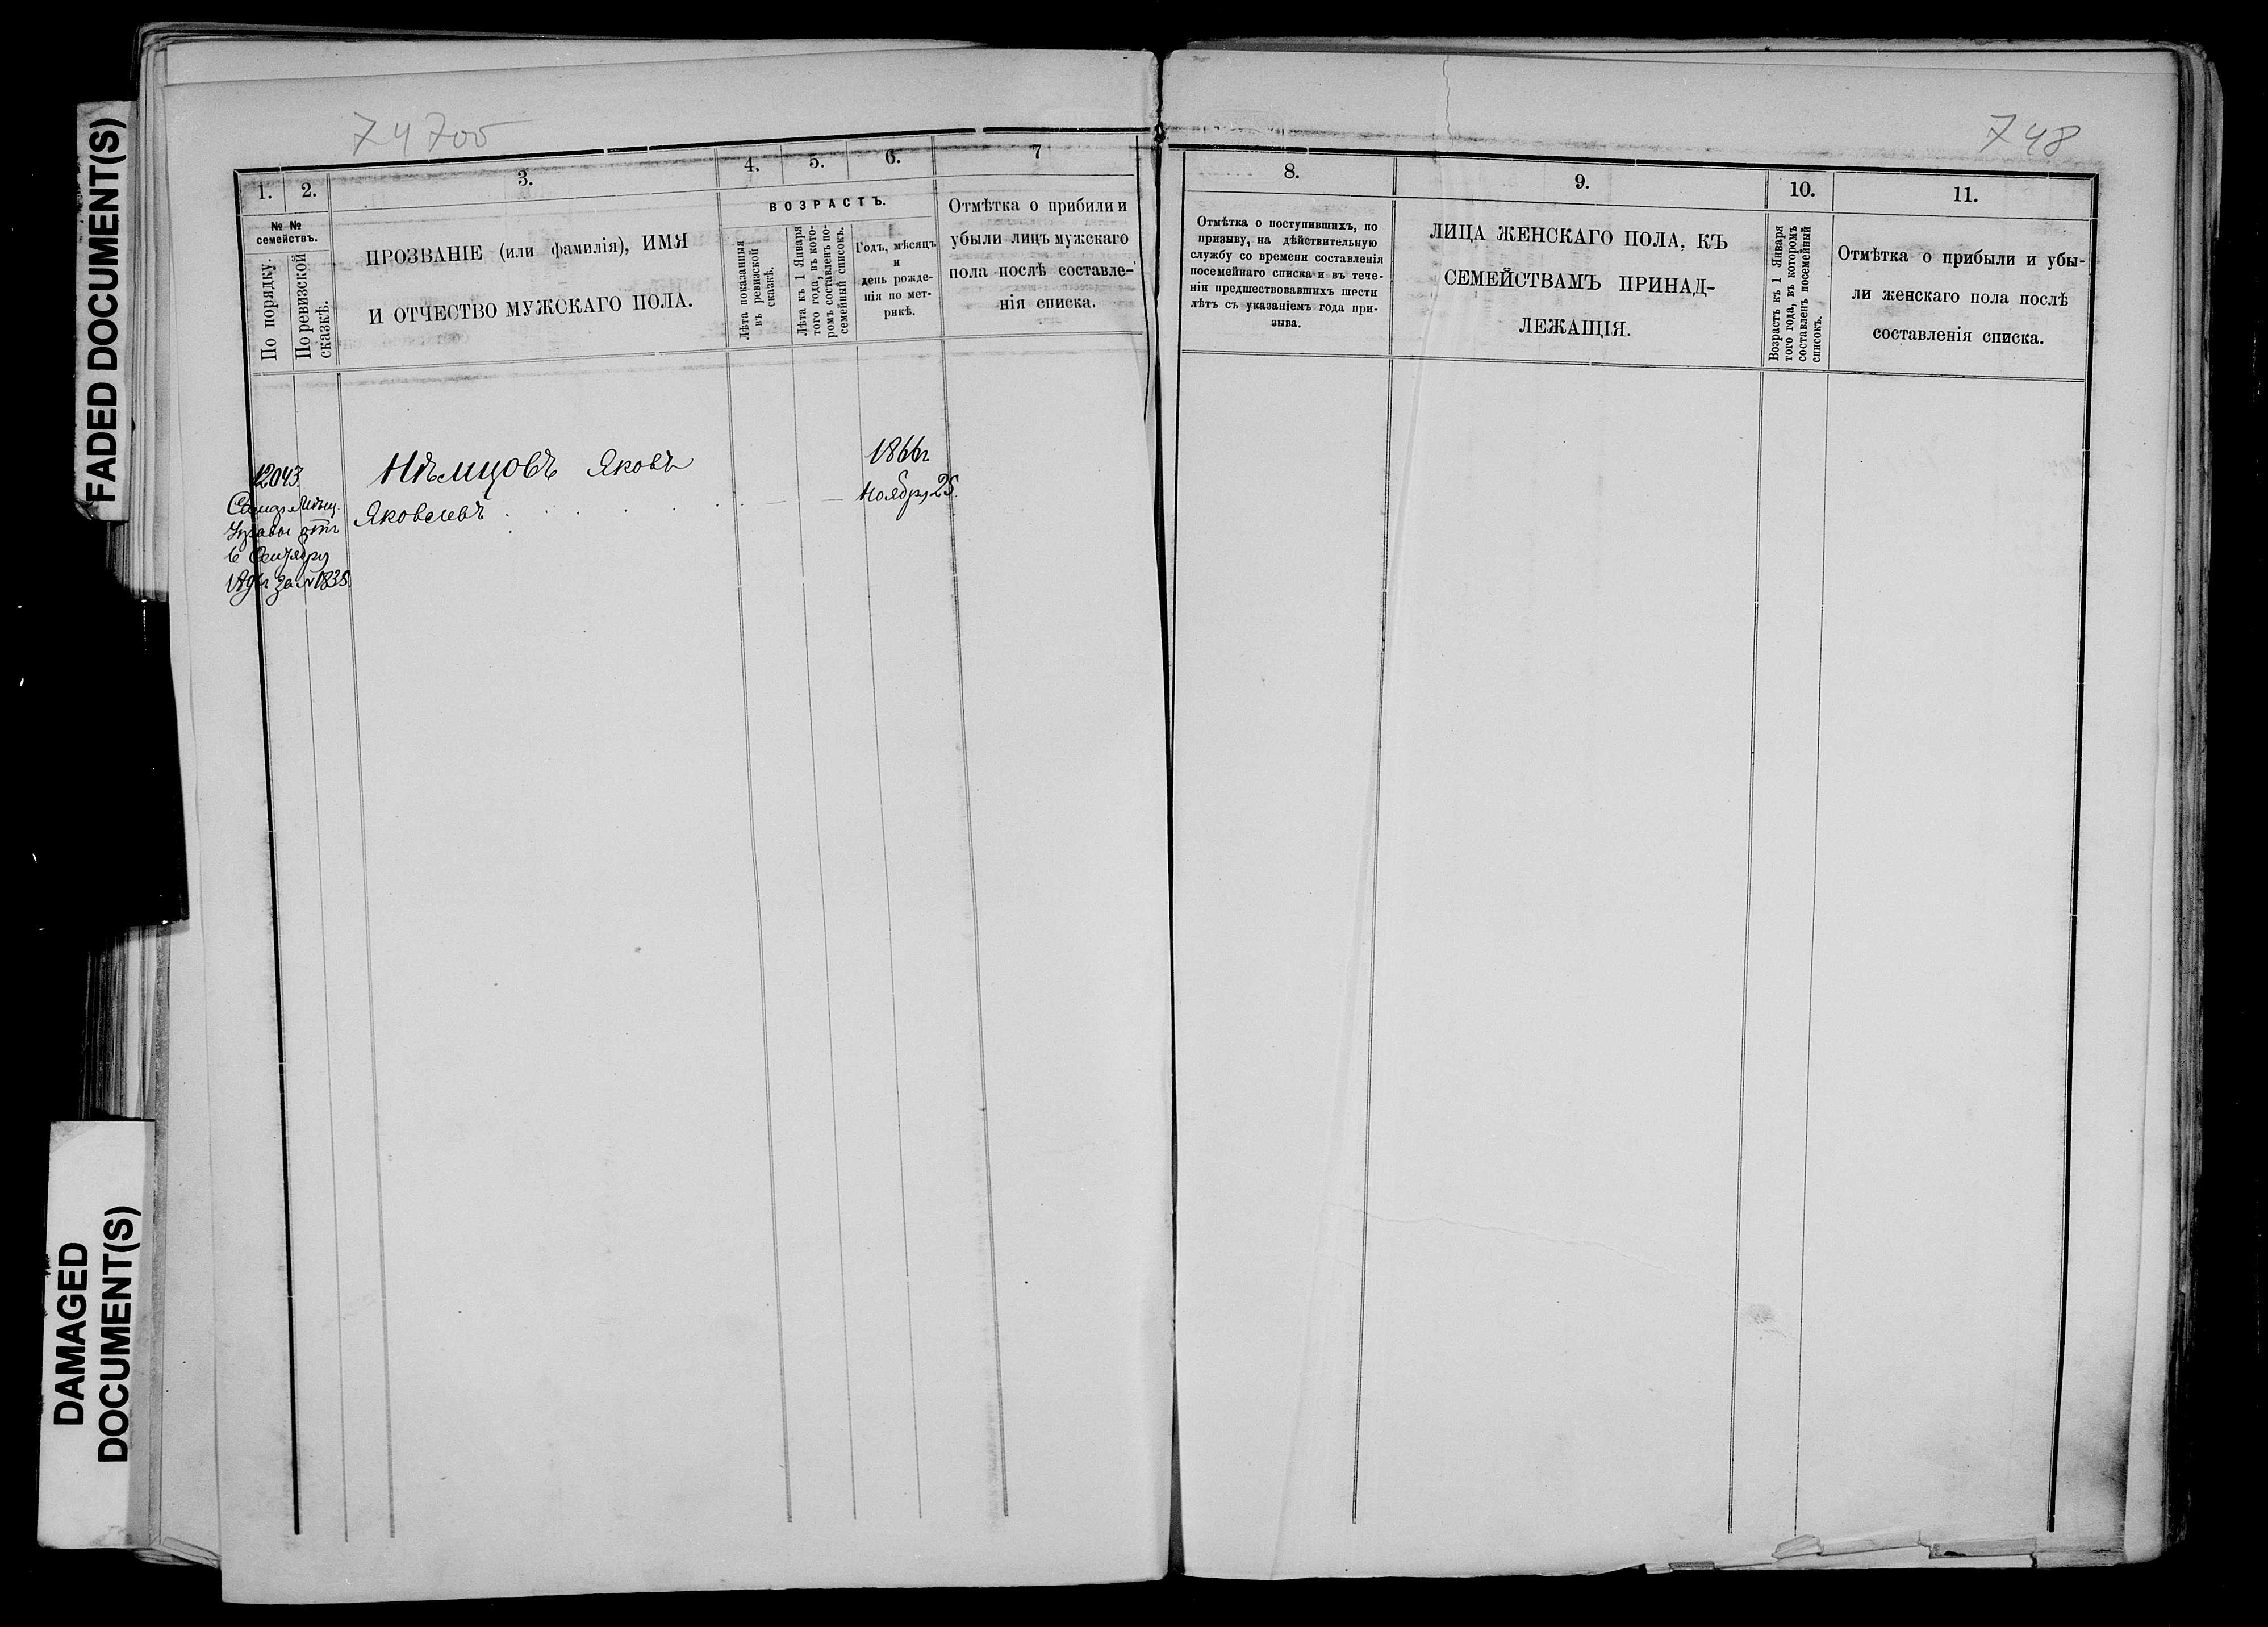 FADED DOCUMENT(S)
DAMAGED
DOCUMENT(S)
74 7об
1. 2. 3. 4. 5. 6. 7
№ №
семействъ.
По порядку.
По ревизской
сказкѣ.
ПРОЗВАНІЕ (или фамилія), ИМЯ
И ОТЧЕСТВО МУЖСКАГО ПОЛА.
ВОЗРАСТЪ.
Лѣта показанныя
въ ревизской
сказкѣ.
Лѣта къ 1 Января
того года, въ кото-
ромъ составленъ по-
семейный списокъ.
Годъ, мѣсяцъ
и
день рожде-
нія по мет-
рикѣ.
Отмѣтка о прибили и
убыли лицъ мужскаго
пола послѣ составле-
нія списка.
12043.
Нѣмцовъ Яковъ
Яковлевъ
1866г
Ноября 25.
управы отъ
Сентября
за № 1835.
748
8. 9. 10. 11.
Отмѣтка о поступившихъ, по
призыву, на дѣйствительную
службу со времени составленія
посемейнаго списка и въ тече-
ніи предшествовавшихъ шести
лѣтъ съ указаніемъ года при-
зыва.
ЛИЦА ЖЕНСКАГО ПОЛА, КЪ
СЕМЕЙСТВАМЪ ПРИНАД-
ЛЕЖАЩІЯ.
Возрастъ къ 1 Января
того года, въ которомъ
составленъ посемейный
списокъ.
Отмѣтка о прибыли и убы-
ли женскаго пола послѣ
составленія списка.